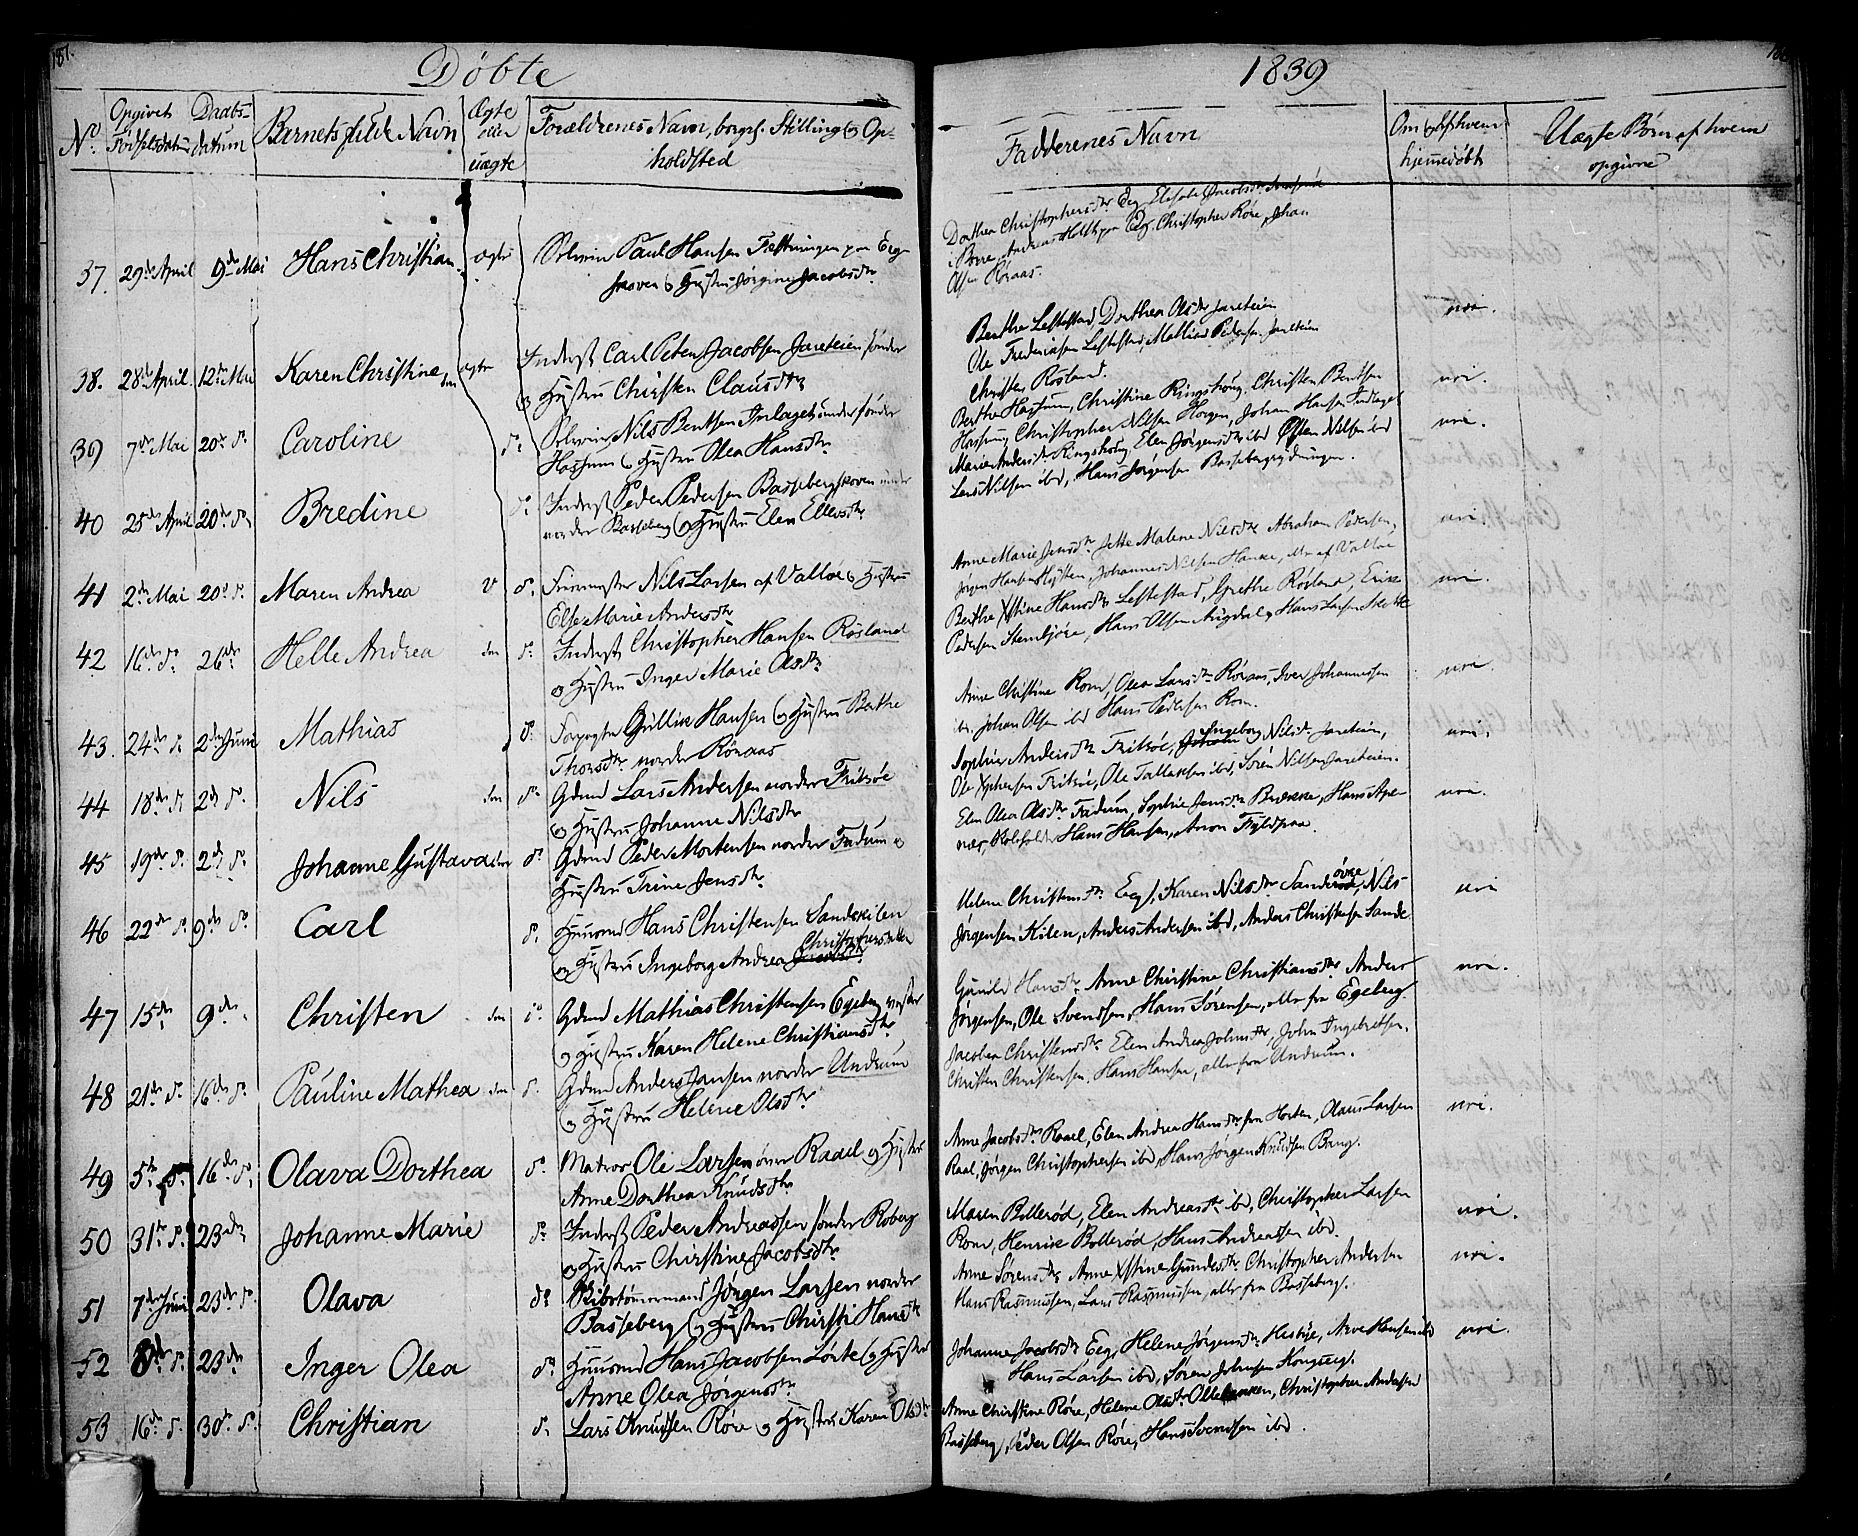 187.
Døbte
1839
No.
Opgivet Fødselsdatum
Daabs-datum
Barnets fulde Navn
Ægte eller uægte
Forældrenes Navn, borgl. Stilling og Opholdsted
Faddernes Navn
Om og af hvem hjemmedøbt
Uægte Børn af hvem opgivne
37. 29de April 9de Mai Hans Christian ægte Paul Hansen Fæstningen
skoven og Hustru Jørgine Jacobsdtr
Dorthea Christophersdtr Eeg, Jacobsdtr
Borre, Andreas Holth Eeg, Christopher Røre, Johan
Olsen Røraas.
38. 28de April 12te Mai Karen Christine ægte Inderst Carl Peter Jacobsen Jareteien sønder
og Hustru Christen Clausdtr
Berthe Leftestad, Dorthea Olsdtr Jareteien
Ole Frederiksen Leftestad, Mathias Pedersen Jareteien
Christen Røsland.
nei.
39 7de Mai 20de do Caroline do Nils Bentsen sønder
Hassum og Hustru Olea Hansdtr
Berthe Hassum, Christine Ringshoug, Christen Bentsen
Hassum, Christopher Nilsen Horgen, Johan Hansen
nei.
40 25de April 20de do Bredine do Inderst Peder Pedersen Bassebergskoven under
nordre Basseberg og Hustru Elen Ellevsdtr
Marie Andersdtr Ringshoug, Elen Jørgensdtr ibd Østen Nilsen ibd
Lars Nilsen ibd, Hans Jørgensen Bassebergrydningen.
nei.
41 2den Mai 20de do Maren Andrea do Nils Larsen af Valløe og Hustru
Else Marie Andersdtr
Anne Marie Jensdtr, Jette Malene Nilsdtr, Abraham Pedersen,
Jørgen Hansen Hytten, Johannes Nilsen Hanke, alle af Valløe
nei.
42 16de do 26de Helle Andrea do Inderst Christopher Hansen Røsland
og Hustru Inger Marie Olsdtr
Berthe Xstine Hansdtr Leftestad, Grethe Røsland, Erik
Pedersen Stenbjøre, Hans Olsen Augdal, Hans Larsen
nei.
43. 24de do 2den Juni Mathias do Gullik Hansen og Hustru Berthe
Thorsdtr nordre Røraas
Anne Christine Rom, Olea Larsdtr Røraas, Iver Johannesen
ibd Johan Olsen ibd Hans Pedersen Rom.
nei.
44 18de do 2den do Nils do Gdmd Lars Andersen nordre Fritsøe
og Hustru Johanne Nilsdtr
Sophie Andersdtr Fritsøe, Ingeborg Nilsdtr Jareteien,
Ole Xphersen Fritsøe, Ole Tallaksen ibd, Søren Nilsen Jareteien.
nei.
45 19de do 2den do Johanne Gustava do Gdmd Peder Mortensen nordre Fadum og
Hustru Trine Jensdtr
Elen Olea Olsdtr Fadum, Sophie Jensdtr Brekke, Hans
Hans Hansen, Aron Fyldpaa.
nei.
46 22de do 9de do Carl do Huusmd Hans Christensen Sandskilen
og Hustru Ingeborg Andrea Christophersdatter
Helene Christensdtr Eeg, Karen Nilsdtr Sande øvre, Nils
Jørgensen Kilen, Anders Andersen ibd, Anders Christensen Sande
nei
47 15de 9de Christen do Gdmd Mathias Christensen Egeberg vestre
og Hustru Karen Helene Christiansdtr
Gunild Hansdtr Anne Christine Christiansdtr Anders
Jørgensen, Ole Svendsen, Hans Sørensen, alle fra Egeberg.
nei.
48 21de do 16de do Pauline Mathea do Gdmd Anders Jansen nordre Undrum
og Hustru Helene Olsdtr
Jacobea Christensdtr. Elen Andrea Johnsdtr, John Ingebretsen,
Christen Christensen, Hans Hansen, alle fra Undrum.
nei.
49 5te do 16de do Olava Dorthea do Matros Ole Larsen øvre Raael og Hustru
Anne Dorthea Knudsdtr
Anne Jacobsdtr Raael, Elen Andrea Hansdtr fra Horten, Olaus Larsen
Raael, Jørgen Christophersen ibd, Hans Jørgen Knudsen Bang.
50 31te do 23de Johanne Marie do Inderst Peder Andreassen søndre Roberg
og Hustru Christine Jacobsdtr
Maren Bollerød, Elen Andreasdtr ibd, Christopher Larsen
Rom, Henrik Bollerød, Hans Andreassen ibd.
nei.
51 7de Juni 23de do Olava do Jørgen Larsen nordre
Basseberg og Hustru Christi Hansdtr
Anne Sørensdtr Anne Xstine Gundersdtr Christopher Andersen
Hans Rasmussen, Lars Rasmussen, alle fra Basseberg.
nei.
52 8de do 23de Inger Olea do Huusmd Hans Jacobsen Lørte og Hustru
Anne Olea Jørgensdtr
Johanne Jacobsdtr Eeg, Helene Jørgensdtr Hesbye, Arve Hansen ibd
Hans Larsen ibd, Søren Johnsen Kongseg.
nei.
53 16de do 30te do Christian do Lars Knudsen Røre og Hustru Karen Olsdtr
Anne Christine Røre, Helene Olsdtr Ollebakken, Christopher Andersen
Basseberg, Peder Olsen Røre, Hans Svendsen ibd.